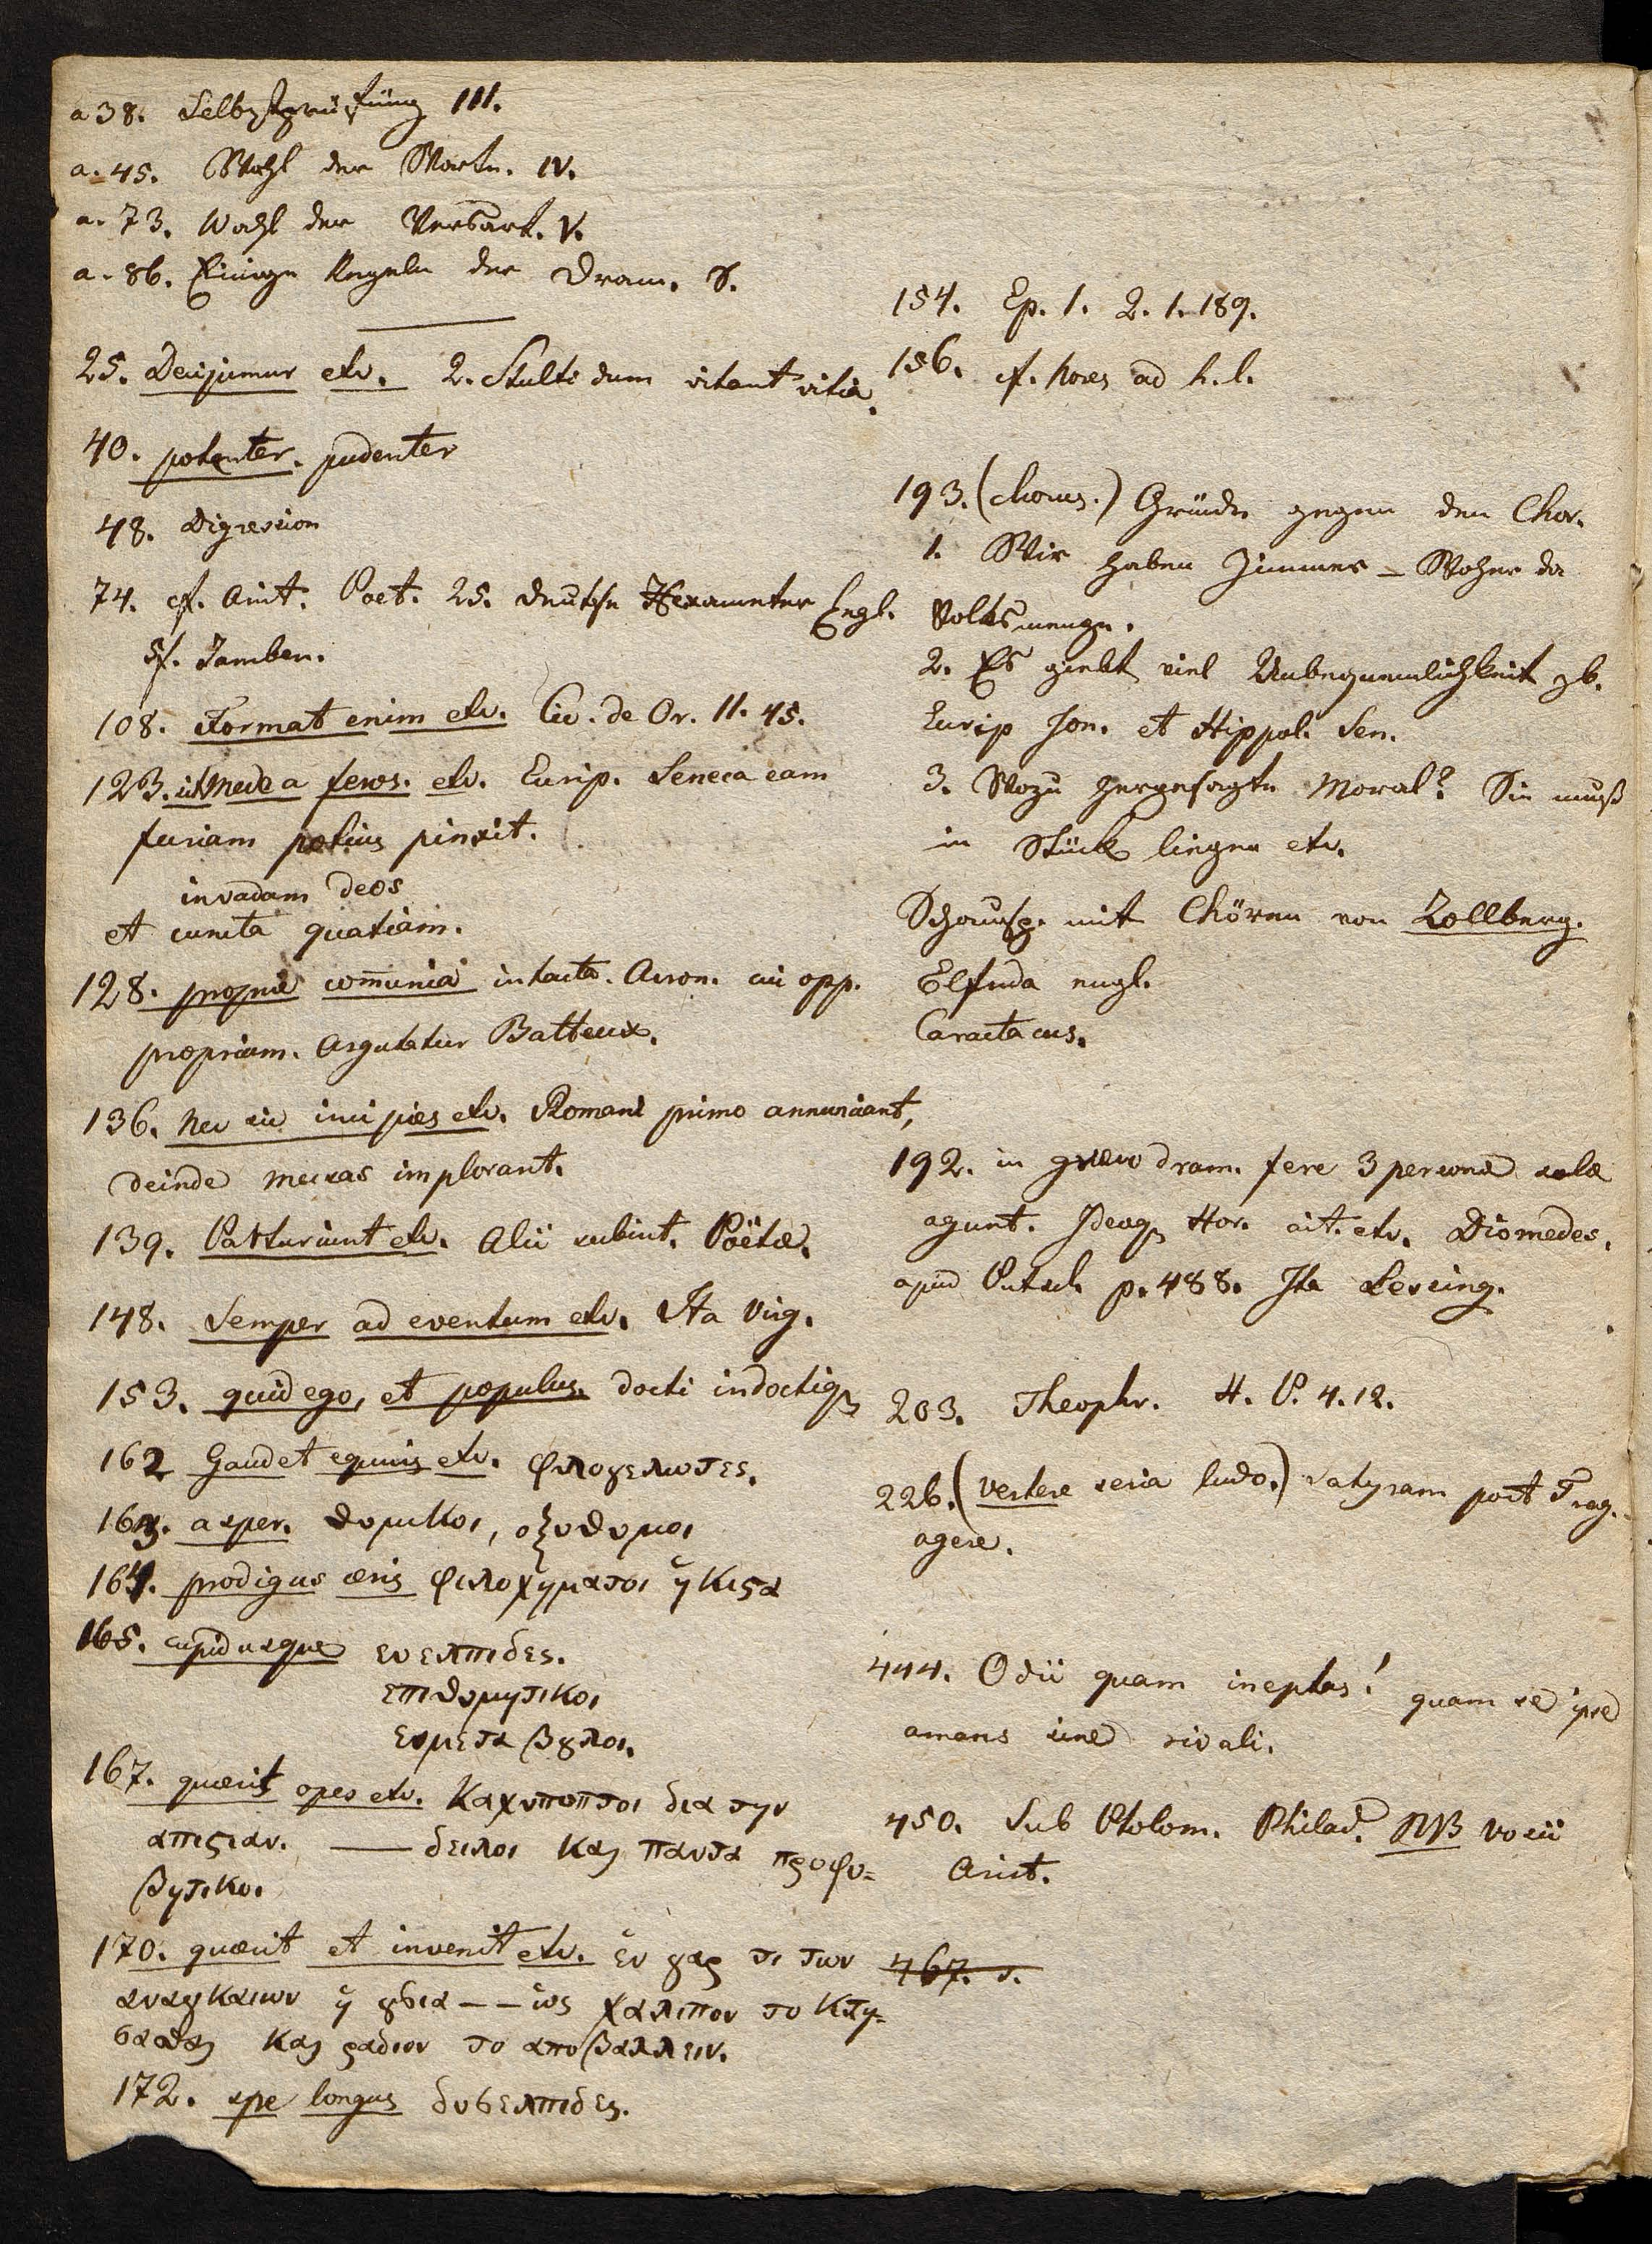 a 38. Selbstprüfung III.
a. 45. Wahl der Worte. IV.
a. 73. Wahl der Versart. V.
a. 86. Einige Regeln der Dram. S.
25. Decipimur etc. 2. Stulti dum vitant vitia.
40. potenter. pudenter
48. Digression
74. cf. Arist. Poet. 25. deutsche Hexameter Engl.
5f. Jamben.
108. Format enim etc. Cic. de Or. II. 45.
123. sit Medea ferox. etc. Eurip. Seneca eam
furiam potius pinxit.
invadam deos
et cuncta quatiam.
128. proprie com̅unia intacta. Acron. cui opp.
propriam. Argutatur Batteux.
136. Nec sic incipies etc. Romani primo annunciant,
deinde musas implorant.
139. Parturiunt etc. Alii rubint. Poëtæ.
148. Semper ad eventum etc. Ita Virg.
153. quid ego, et populus. docti indoctiq3
162 Gaudet equis etc. φιλογελωτες.
163. asper. θυμικοι, οξυθυμοι
164. prodigus æris φιλοχρηματοι ἠκιϛα
165. cupidusque ευελπιδες.
επιθυμητικοι
ευμεταβολοι.
167. quærit opes etc. Καχυποπτοι δια την
απιϛιαν. — δειλοι και παντα προφο=
βητικοι
170. quærit et invenit etc. ἑν γαρ τι των
αναγκαιων ἡ ȣσια -- ὡς χαλεπον το κτη=
σασθαι και ραδιον το αποβαλλειν.
172. spe longus δυσελπιδες.
154. Ep. 1. 2. 1. 189.
156. cf. nores ad h. l.
193. (chorus.) Gründe gegen den Chor.
1. Wir haben Zimmer – Woher da
Volksmenge.
2. Es giebt viel Unbequemlichkeit zb.
Eurip Jon. et Hippol. Sen.
3. Wozu hergesagte Moral? Sie muß
in Stück liegen etc.
Schausp. mit Chören von Zollberg.
Elfrida engl.
Caractacus.
192. in græco dram. fere 3 personæ solæ
agunt. Ideoq3 Hor. ait. etc. Diomedes.
apud Putsch p. 488. Ita Lessing.
203. Theophr. H. P. 4. 12.
226. (vertere seria ludo.) satyram post Trag.
agere.
444. Odii quam ineptus! quam se ipse
amans sine rivali.
450. Sub Ptolom. Philad. NB Vossii
Arist.
467. s.